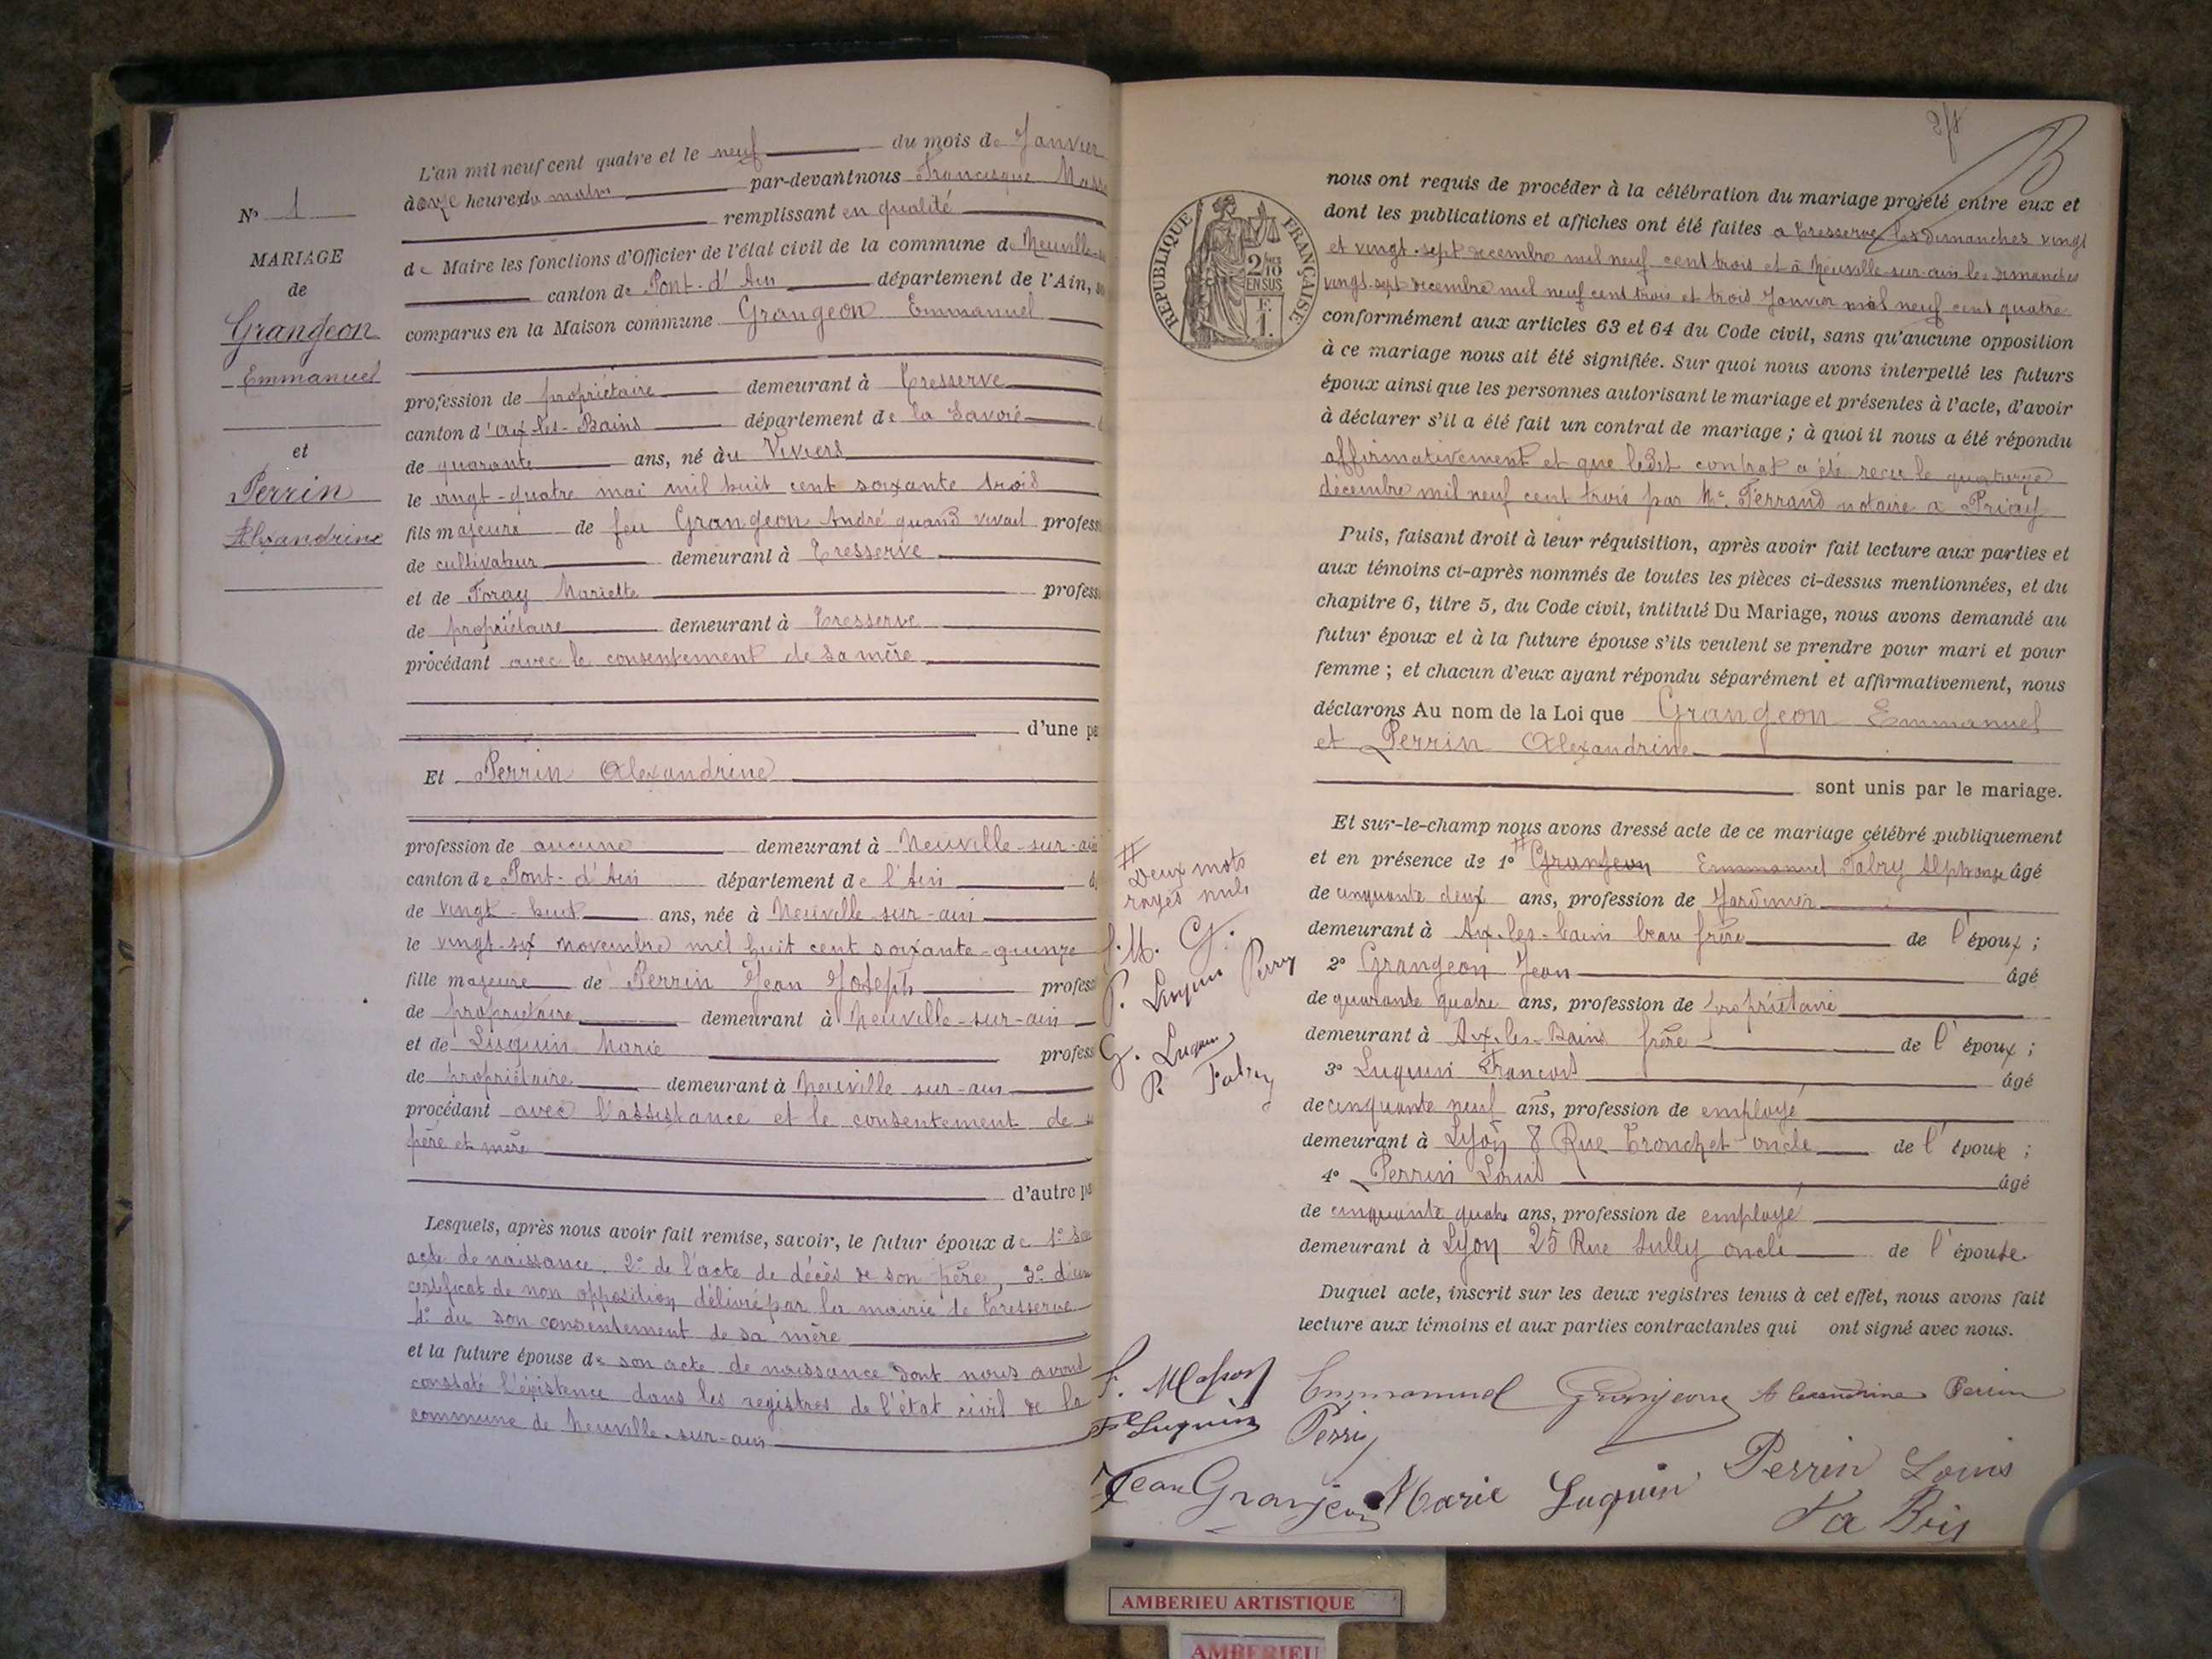 N° 1
MARIAGE
de
Grangeon
Emmanuel
et
Perrin
Alexandrine
L'an mil neuf cent quatre et le neuf du mois de Janvier
à onze heures du matin par-devant nous Francisque
remplissant en qualité
de Maire les fonctions d'Officier de l'état civil de la commune de Neuville-
canton de Pont-d'Ain département de l'Ain,
comparus en la Maison commune Grangeon Emmanuel
profession de propriétaire demeurant à Tresserve
canton d'Aix-les-Bains département de la Savoie
de quarante ans, né au Viviers
le vingt-quatre mai mil huit cent soixante trois
fils majeure de feu Grangeon André quand vivait profess
de cultivateur demeurant à Tresserve
et de Foray Mariette profess
de propriétaire demeurant à Tresserve
procédant avec le consentement de sa mère
d'une pa
Et Perrin Alexandrine
profession de aucune demeurant à Neuville-sur-ain
canton de Pont-d'Ain département de l'Ain
de vingt-huit ans, née à Neuville-sur-ain
le vingt-six novembre mil huit cent soixante-quinze
fille majeure de Perrin Jean Joseph profess
de propriétaire demeurant à Neuville-sur-ain
et de Luquin Marie profess
de propriétaire demeurant à Neuville sur-ain
procédant avec l'assistance et le consentement de
père et mère
d'autre pa
Lesquels, après nous avoir fait remise, savoir, le futur époux de 1° So
acte de naissance, 2° de l'acte de décès de son père, 3° d'un
certificat de non opposition délivré par la mairie de Tresserve
4° du son consentement de sa mère
et la future épouse de son acte de naissance dont nous avons
constaté l'existence dans les registres de l'état civil de la
commune de Neuville-sur-ain
RÉPUBLIQUE FRANÇAISE
2/10
EN SUS
F.
1.
nous ont requis de procéder à la célébration du mariage projeté entre eux et
dont les publications et affiches ont été faites a Tresserve les dimanches vingt
et vingt-sept decembre mil neuf cent trois et à Neuville-sur-ain les dimanches
vingt-sept decembre mil neuf cent trois et trois Janvier mil neuf cent quatre
conformément aux articles 63 et 64 du Code civil, sans qu'aucune opposition
à ce mariage nous ait été signifiée. Sur quoi nous avons interpellé les futurs
époux ainsi que les personnes autorisant le mariage et présentes à l'acte, d'avoir
à déclarer s'il a été fait un contrat de mariage ; à quoi il nous a été répondu
affirmativement et que ledit contrat a été reçu le quatorze
décembre mil neuf cent trois par Me Ferrand notaire a Priay
Puis, faisant droit à leur réquisition, après avoir fait lecture aux parties et
aux témoins ci-après nommés de toutes les pièces ci-dessus mentionnées, et du
chapitre 6, titre 5, du Code civil, intitulé Du Mariage, nous avons demandé au
futur époux et à la future épouse s'ils veulent se prendre pour mari et pour
femme ; et chacun d'eux ayant répondu séparément et affirmativement, nous
déclarons Au nom de la Loi que Grangeon Emmanuel
et Perrin Alexandrine
sont unis par le mariage.
Et sur-le-champ nous avons dressé acte de ce mariage célébré publiquement
et en présence de 1° # Grangeon Emmanuel Fabry Alphonse âgé
de cinquante deux ans, profession de Jardinier
demeurant à Aix-les-bains beau frère de l'époux ;
2° Grangeon Jean âgé
de quarante quatre ans, profession de propriétaire
demeurant à Aix-les-Bains frère de l'époux ;
3° Luquin François âgé
de cinquante neuf ans, profession de employé
demeurant à Lyon 8 Rue Tronchet oncle de l'épouse ;
4° Perrin Louis âgé
de cinquante quatre ans, profession de employé
demeurant à Lyon 25 Rue Sully oncle de l'épouse.
Duquel acte, inscrit sur les deux registres tenus à cet effet, nous avons fait
lecture aux témoins et aux parties contractantes qui ont signé avec nous.
#
Deux mots
rayés nuls
f. M. G.
P. Luquin Perrin
G. Luquin
P. Fabry
Emmanuel Granjeon Alexandrine Perrin
Luquin Perrin
Jean Granjeon Marie Luquin Perrin Louis
Fabry
AMBERIEU ARTISTIQUE
AMBERIEU